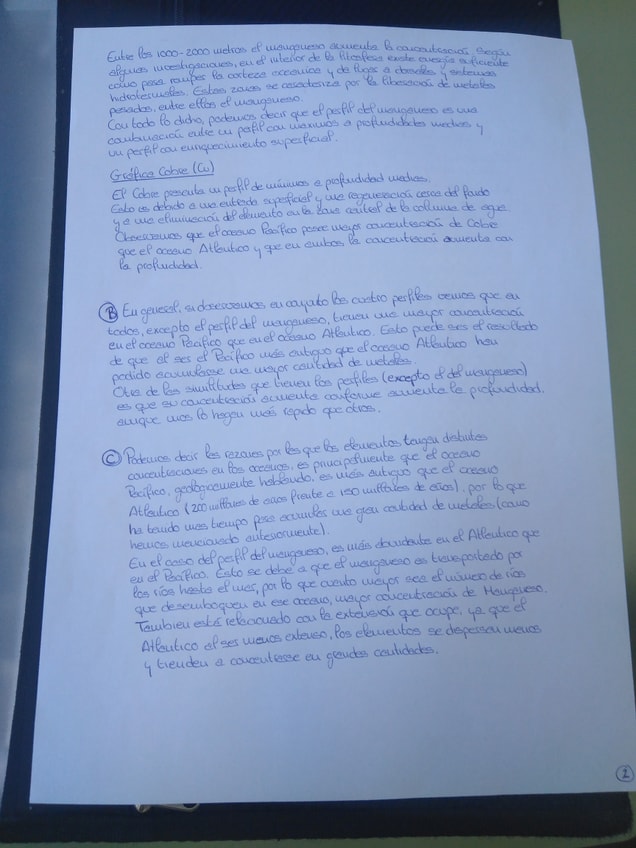 Entre los 1000-2000 metros el manganeso aumenta la concentración. Según
algunas investigaciones, en el interior de la litosfera existe energía suficiente
como para romper la corteza oceánica y da lugar a dorsales y sistemas
hidrotermales. Estas zonas se caracterizan por la liberación de metales
pesados, entre ellos el manganeso.
Con todo lo dicho, podemos decir que el perfil del manganeso es una
combinación entre un perfil con máximos a profundidades medias y
un perfil con enriquecimiento superficial.
Gráfica Cobre (Cu)
El Cobre presenta un perfil de mínimos a profundidad medias.
Esto es debido a una entrada superficial y una regeneración cerca del fondo
y a una eliminación del elemento en la zona central de la columna de agua
Observamos que el oceano Pacífico posee mayor concentración de Cobre
que el oceano Atlántico y que en ambos la concentración aumenta con
la profundidad.
B En general, si observamos en conjunto los cuatro perfiles vemos que en
todos, excepto el perfil del manganeso, tienen una mayor concentración
en el oceano Pacífico que en el oceano Atlántico. Esto puede ser el resultado
de que al ser el Pacífico más antiguo que el oceano Atlántico han
podido acumularse una mayor cantidad de metales.
Otra de las similitudes que tienen los perfiles (excepto el del manganeso)
es que su concentración aumenta conforme aumenta la profundidad,
aunque unos lo hagan más rapido que otros.
C Podemos decir las razones por las que los elementos tengan distintas
concentraciones en los oceanos, es principalmente que el oceano
Pacífico, geológicamente hablando, es más antiguo que el oceano
Atlántico (200 millones de años frente a 150 millones de años), por lo que
ha tenido mas tiempo para acumular una gran cantidad de metales (como
hemos mencionado anteriormente).
En el caso del perfil del manganeso, es más abundante en el Atlántico que
en el Pacífico. Esto se debe a que el manganeso es transportado por
los ríos hasta el mar, por lo que cuanto mayor sea el número de ríos
que desemboquen en ese oceano, mayor concentración de Manganeso.
Tambien está relacionado con la extensión que ocupe, ya que el
Atlántico al ser menos extenso, los elementos se dispersan menos
y tienden a concentrarse en grandes cantidades.
2